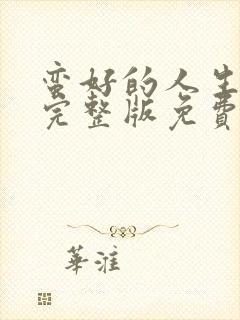 蛮好的人生
完整版免費
華淮